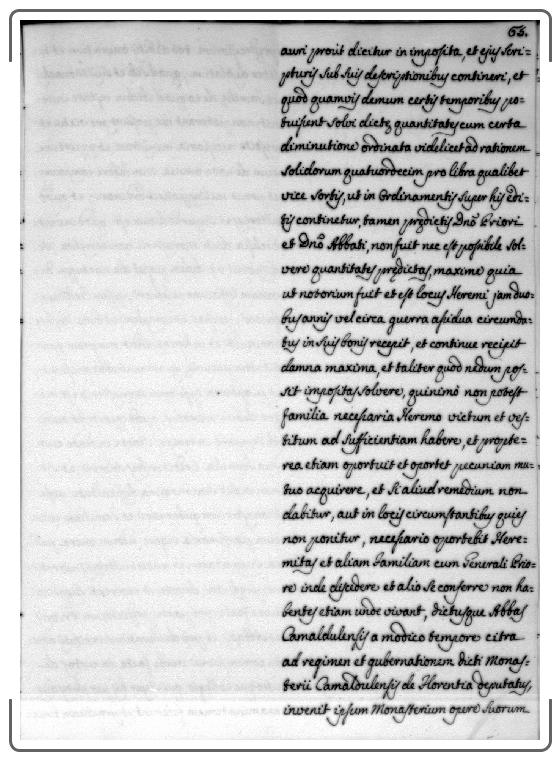 65.
auri prout dicitur in imposita, et ejus scri=
pturis sub suis descriptionibus contineri, et
quod quamvis demum certis temporibus po=
tuissent solvi dictę quantitates cum certa
diminutione ordinata videlicet ad rationem
solidorum quatuordecim pro libra qualibet
vice sortis, ut in Ordinamentis super his edi=
tis continetur, tamen prędictis Dnō Priori
et Dnō Abbati, non fuit nec est possibile sol=
vere quantitates prędictas, maxime quia
ut notorium fuit et est locus Heremi jam duo=
bus annis vel circa guerra assidua circumda=
tus in suis bonis recepit, et continue recipit
damna maxima, et taliter quod nedum pos=
sit impositas solvere, quinimò non potest
familia necessaria Heremo victum et ves=
titum ad sufficientiam habere, et propte=
rea etiam oportuit et oportet pecuniam mu=
tuo acquirere, et si aliud remedium non
dabitur, aut in locis circumstantibus quies
non ponitur, necessario oportebit Here=
mitas et aliam Familiam cum Generali Prio=
re inde discidere et alio se conferre non ha=
bentes etiam unde vivant, dictusque Abbas
Camaldulensis a modico tempore citra
ad regimen et gubernationem dicti Monas=
terii Camaldulensis de Florentia deputatus,
invenit ipsum Monasterium opere suorum